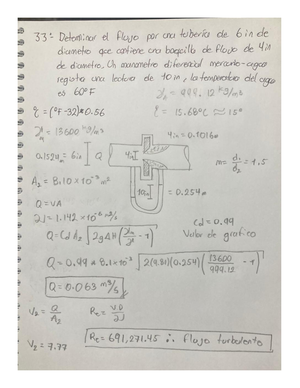 33: Determinar el flujo por una tubería de 6 in de
diametro que contiene una boquilla de flujo de 4 in
de diametro. Un manometro diferencial mercurio-agua
registra una lectura de 10 in, la temperatura del agua
es 60°F
= 999.12 kg/m³
°C = (°F-32)*0.56
°C = 15.68°C ≈ 15°
= 13600 kg/m³
4in = 0.1016m
0.152m = 6in
Q
4in
m = d₁/d₂ = 1.5
10in
= 0.254m
A₂ = 8.10 × 10⁻³ m²
Q = VA
= 1.142 × 10⁻⁶ m²/s
Cd = 0.99
Valor de grafico
Q = Cd A₂ √2gΔH(γm/γa - 1)
Q = 0.99 * 8.1×10⁻³ √2(9.81)(0.254)(13600/999.12 - 1)
Q = 0.063 m³/s
V₂ = Q/A₂
Re = V.D/
V₂ = 7.77
Re = 691,271.45 ∴ flujo turbolento